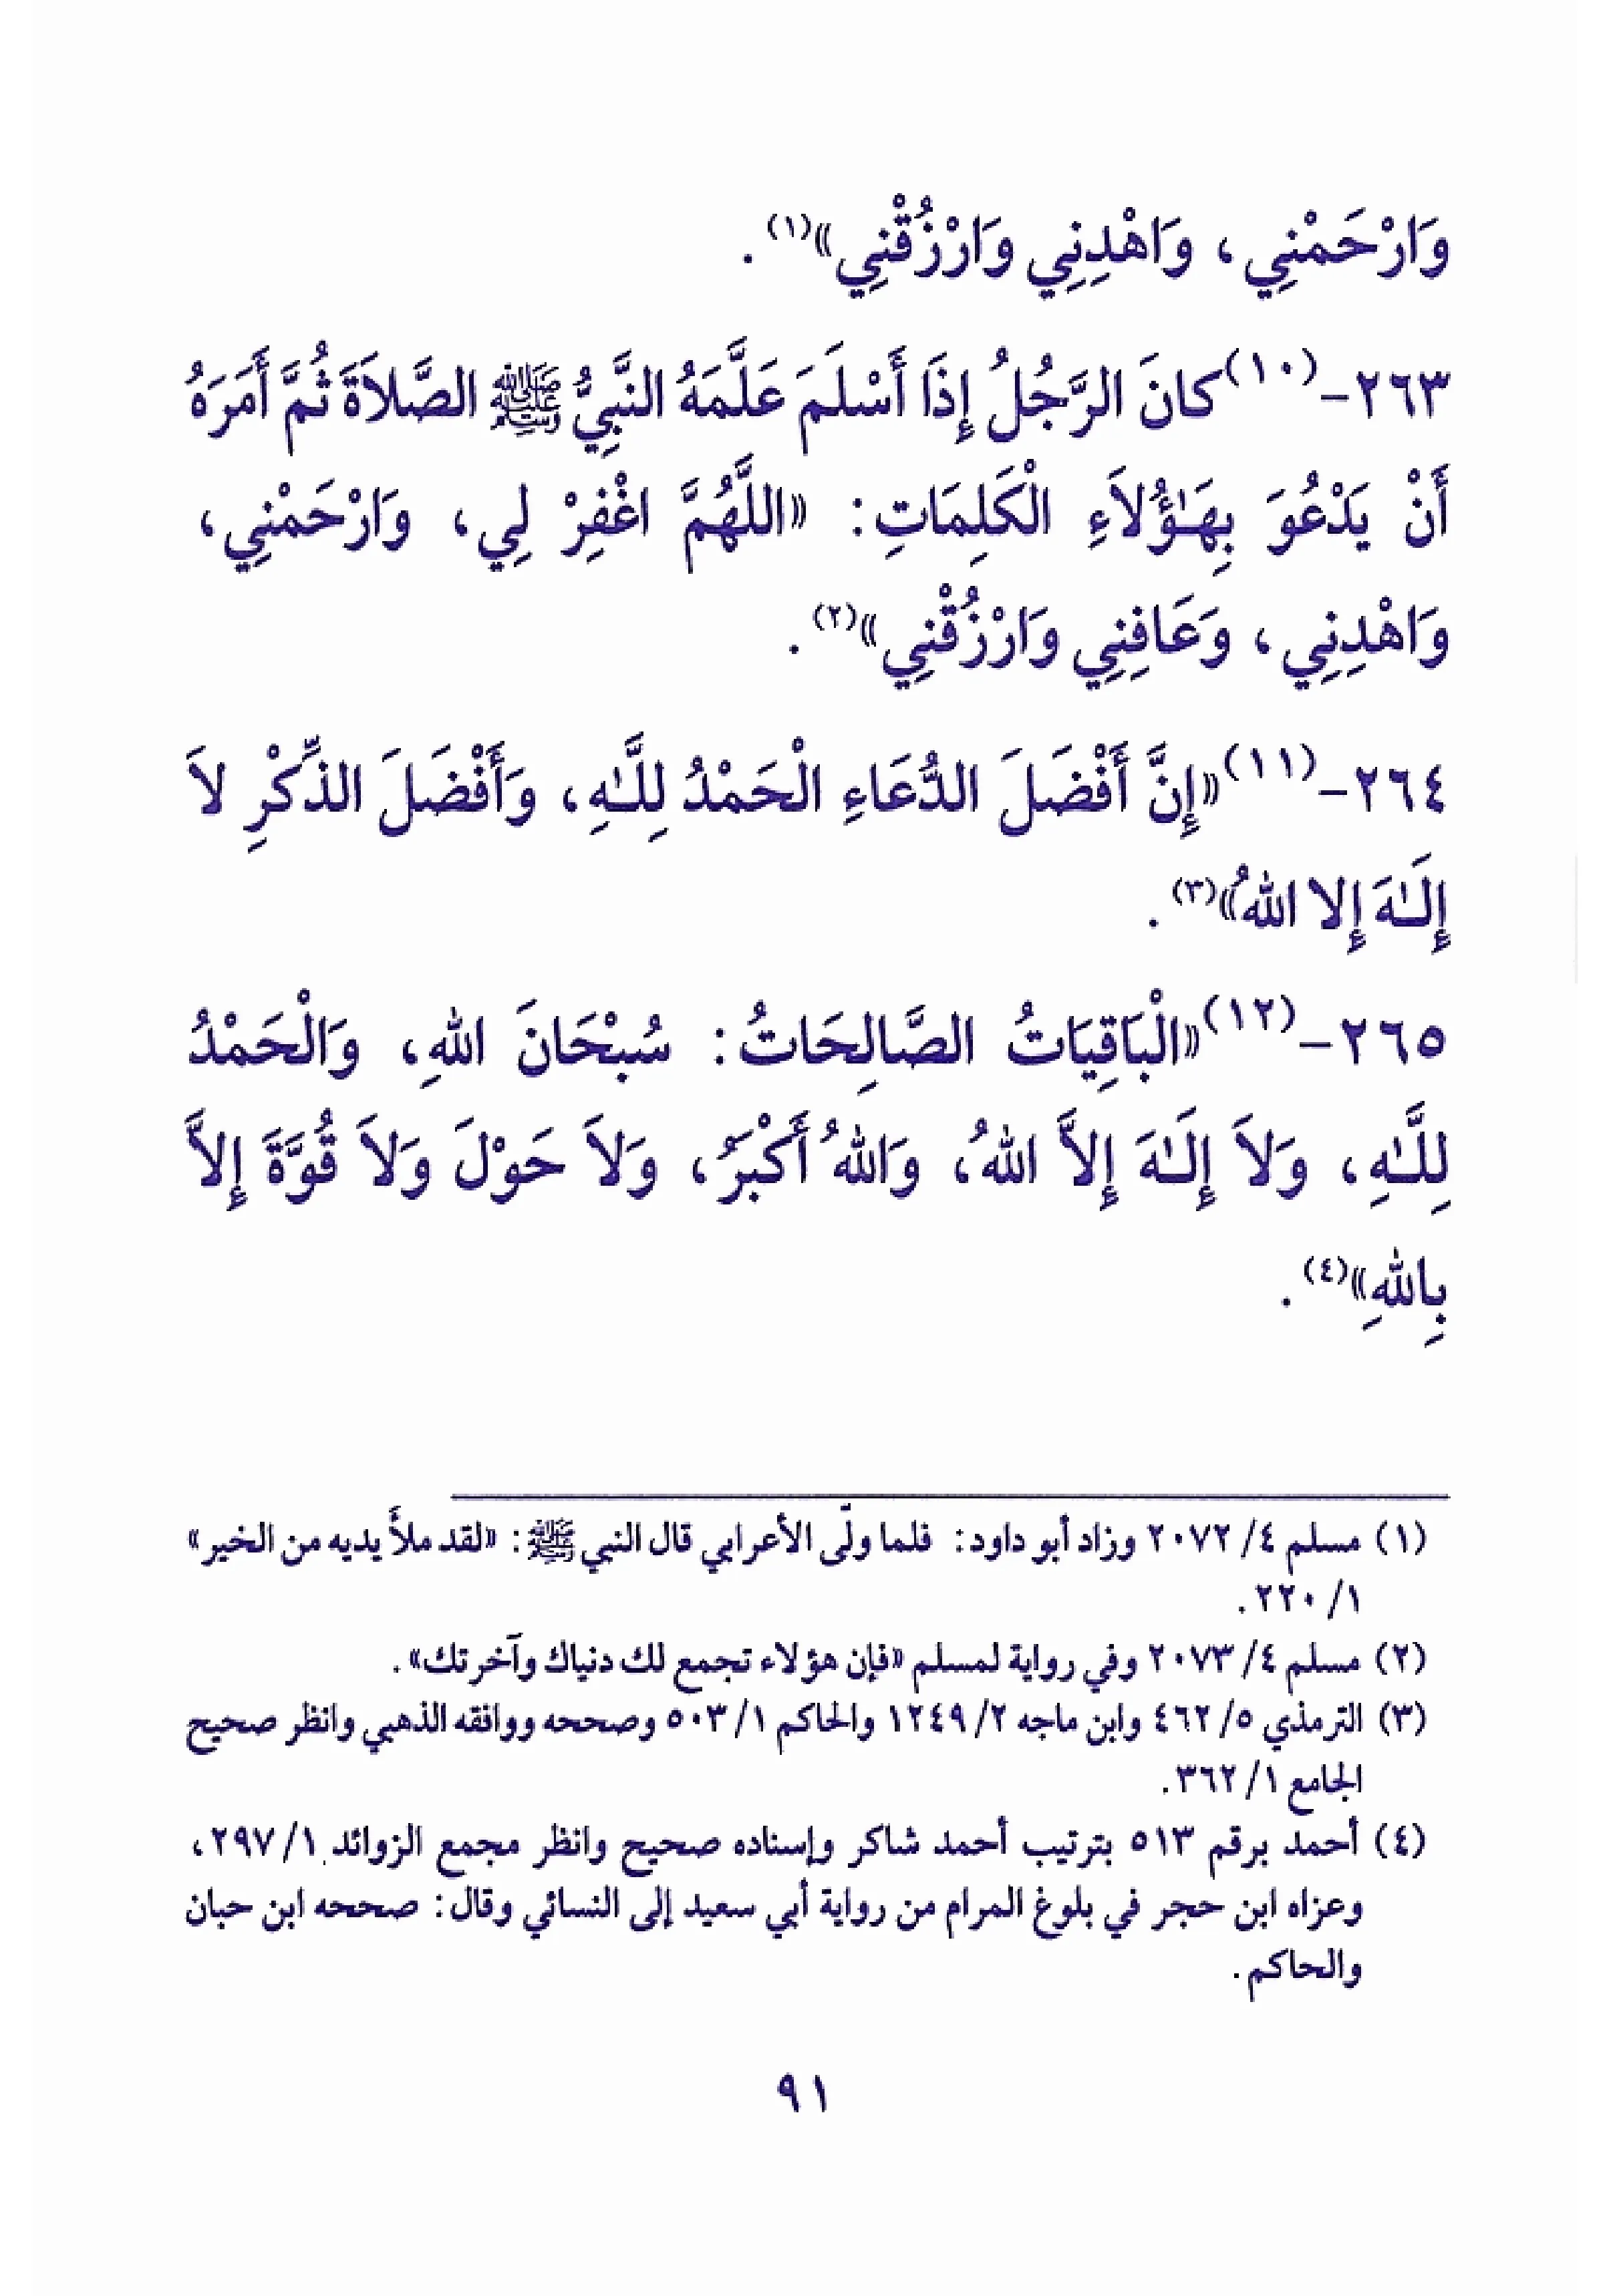 وَارْحَمْنِي، وَاهْدِنِي وَارْزُقْنِي»(١).
٢٦٣-(١٠)كانَ الرَّجُلُ إِذَا أَسْلَمَ عَلَّمَهُ النَّبِيُّ ﷺ الصَّلاَةَ ثُمَّ أَمَرَهُ
أَنْ يَدْعُوَ بِهَـٰؤُلاَءِ الْكَلِمَاتِ: «اللَّهُمَّ اغْفِرْ لِي، وَارْحَمْنِي،
وَاهْدِنِي، وَعَافِنِي وَارْزُقْنِي»(٢).
٢٦٤-(١١)«إِنَّ أَفْضَلَ الدُّعَاءِ الْحَمْدُ لِلَّـٰهِ، وَأَفْضَلَ الذِّكْرِ لاَ
إِلَـٰهَ إِلا اللهُ»(٣).
٢٦٥-(١٢)«الْبَاقِيَاتُ الصَّالِحَاتُ: سُبْحَانَ اللهِ، وَالْحَمْدُ
لِلَّـٰهِ، وَلاَ إِلَـٰهَ إِلاَّ اللهُ، وَاللهُ أَكْبَرُ، وَلاَ حَوْلَ وَلاَ قُوَّةَ إِلاَّ
بِاللهِ»(٤).
(١) مسلم ٤/ ٢٠٧٢ وزاد أبو داود: فلما ولّى الأعرابي قال النبي ﷺ: «لقد ملأ يديه من الخير»
١/ ٢٢٠.
(٢) مسلم ٤/ ٢٠٧٣ وفي رواية لمسلم «فإن هؤلاء تجمع لك دنياك وآخرتك».
(٣) الترمذي ٥/ ٤٦٢ وابن ماجه ٢/ ١٢٤٩ والحاكم ١/ ٥٠٣ وصححه ووافقه الذهبي وانظر صحيح
الجامع ١/ ٣٦٢.
(٤) أحمد برقم ٥١٣ بترتيب أحمد شاكر وإسناده صحيح وانظر مجمع الزوائد ١/ ٢٩٧،
وعزاه ابن حجر في بلوغ المرام من رواية أبي سعيد إلى النسائي وقال: صححه ابن حبان
والحاكم.
٩١